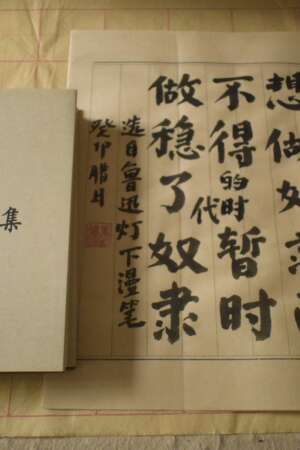 想做奴隶而
不得的时代暂时
做稳了奴隶
选自鲁迅灯下漫笔
癸卯腊月
集